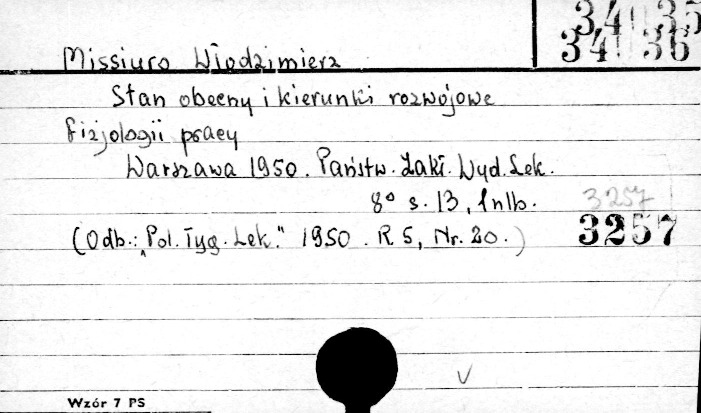 34 35
34 36
Missiuro Włodzimierz
Stan obecny i kierunki rozwojowe
fizjologii pracy
Warszawa 1950. Państw. Zakł. Wyd. Lek.
8° s. 13, 1 nlb.
3257
(Odb.: „Pol. Tyg. Lek." 1950. R 5, Nr. 20.)
3257
Wzór 7 PS